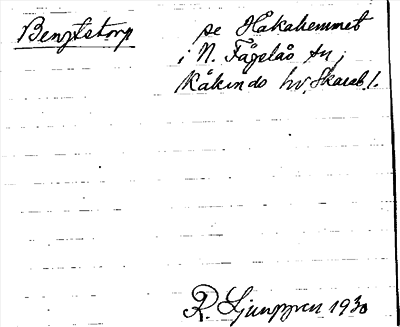 Bengtstorp se Håkahemmet
i N. Fågelås sn,
Kåkinds hd, Skarab. l.
R. Ljunggren 1930